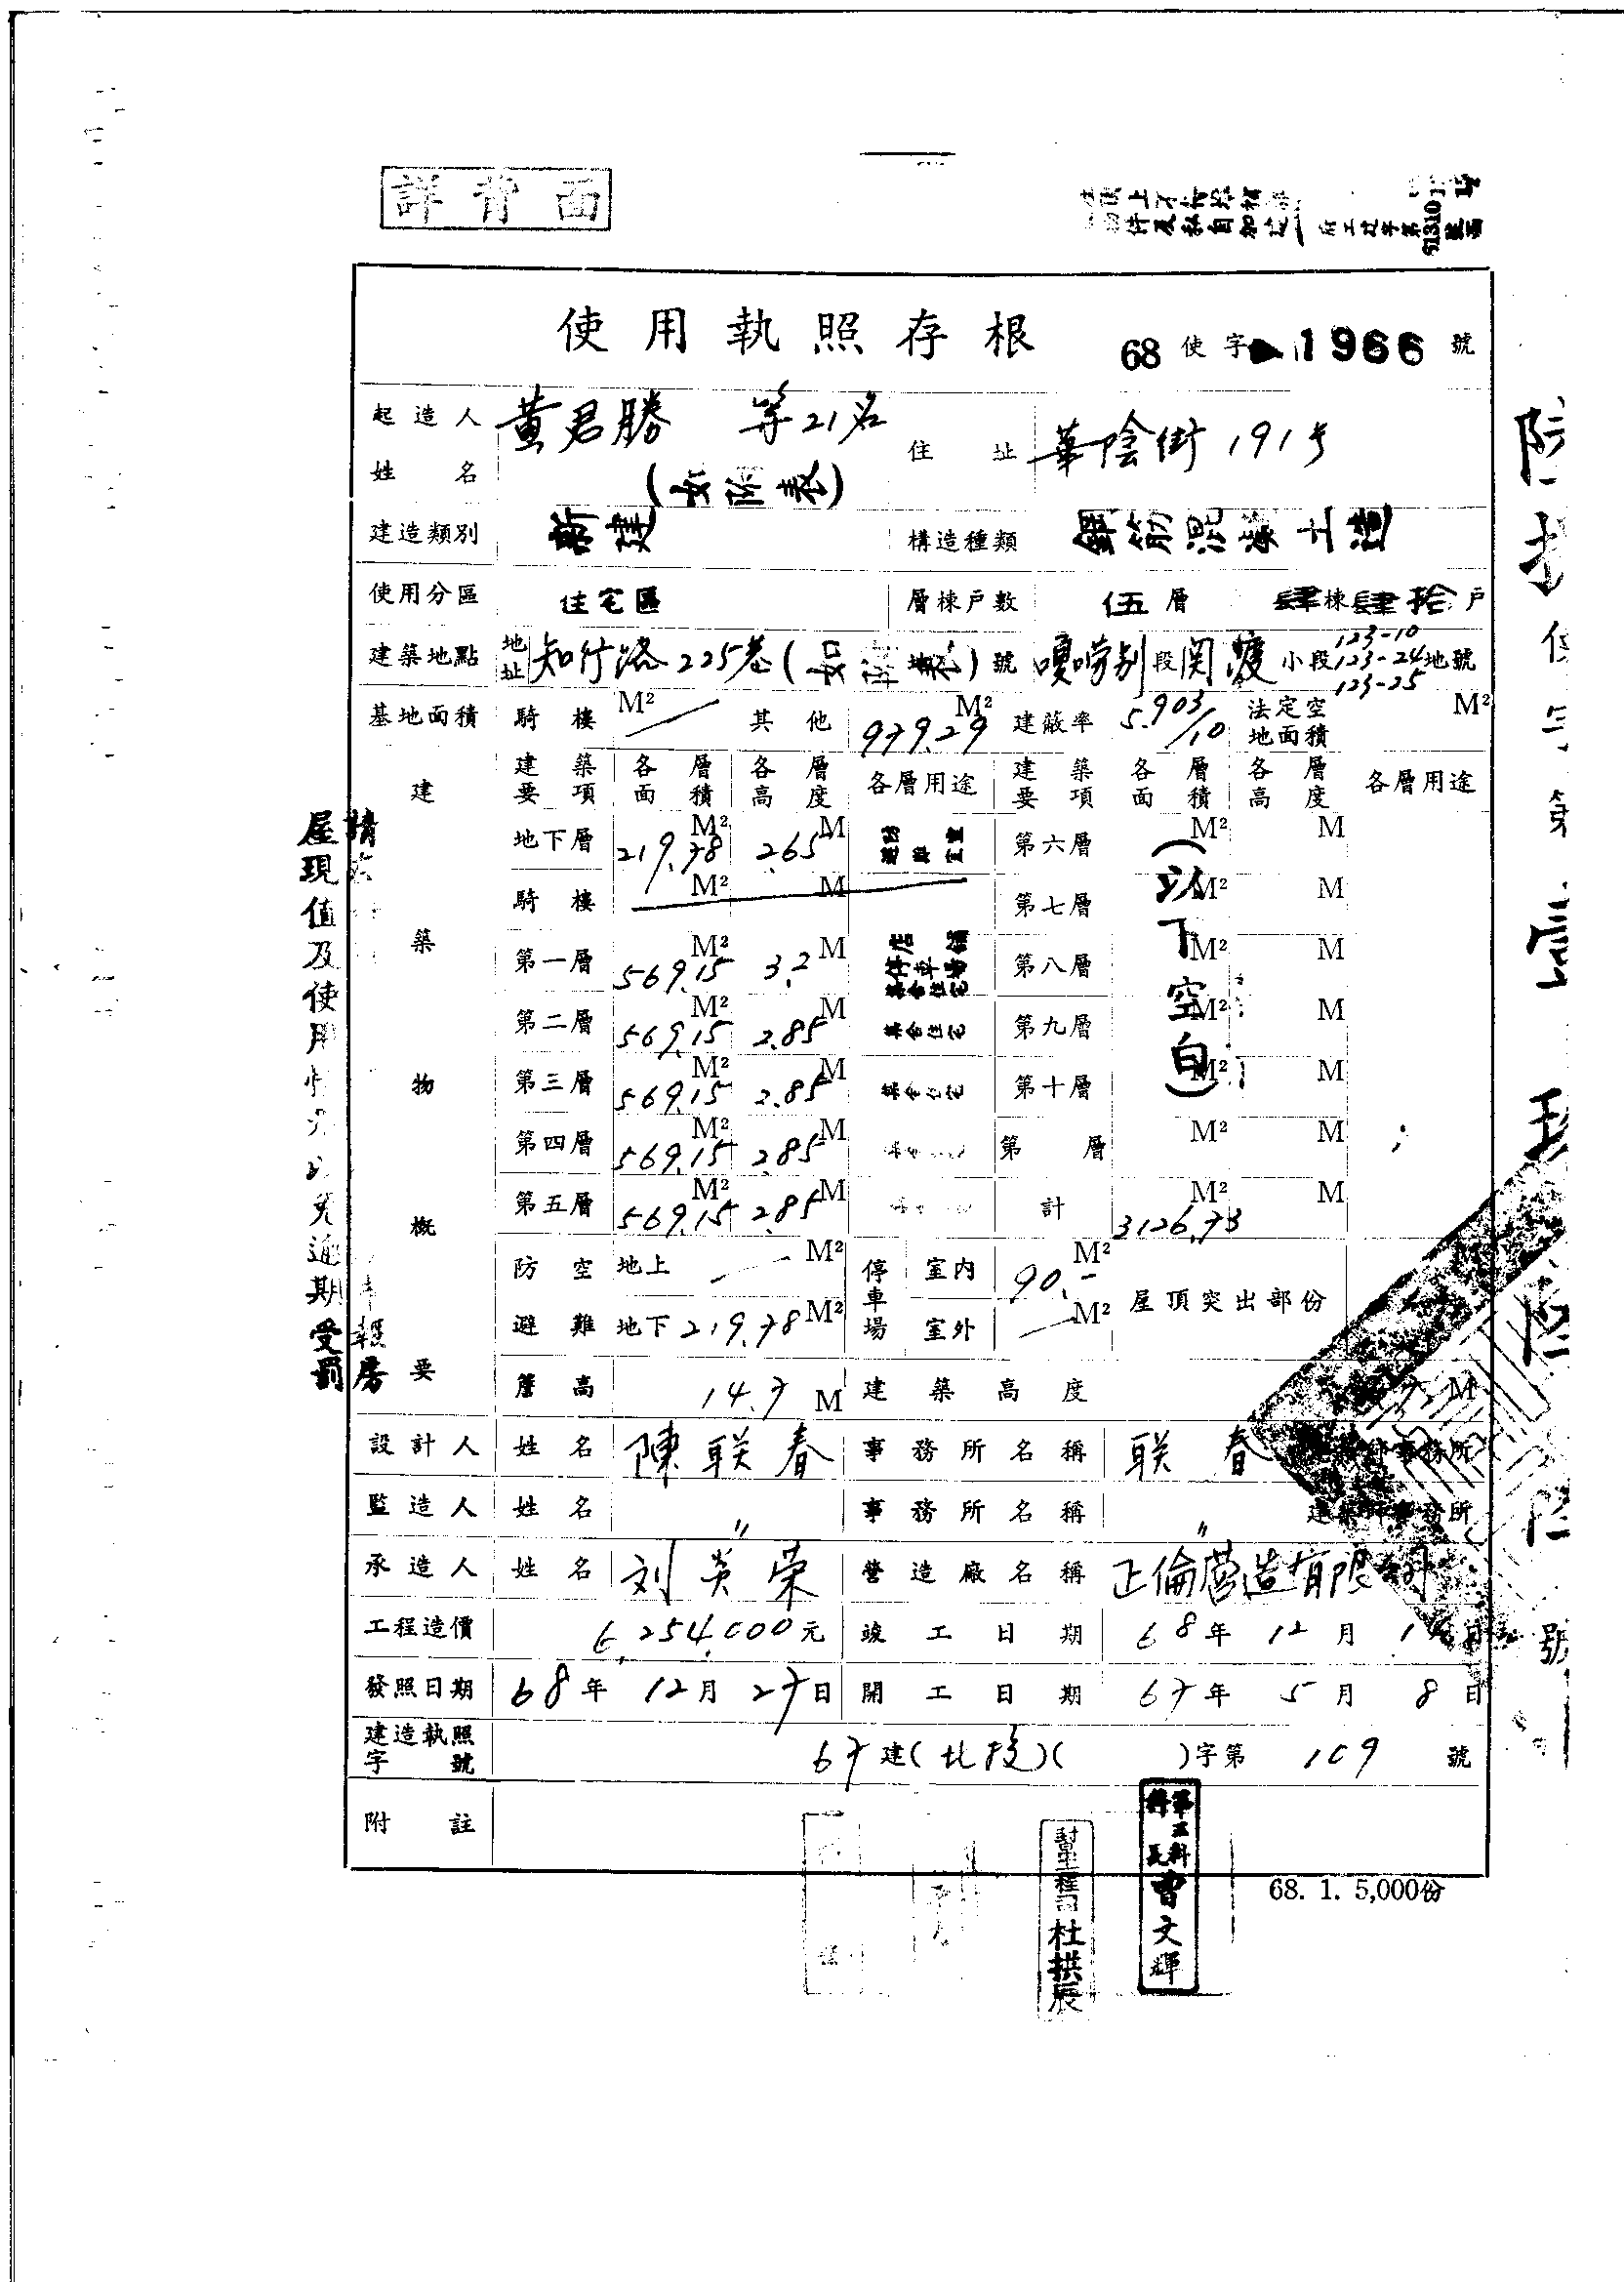 詳背面
使用執照存根 68使字 1966 號
起造人姓名 黃君勝 等21名 (如附表) 住址 華陰街191号
建造類別 新建 構造種類 鋼筋混凝土造
使用分區 住宅區 層棟戶數 伍層 肆棟肆拾戶
建築地點 地址 知行路225巷( ) 號 嗄嘮别段関渡小段 123-10 123-24 123-25 地號
基地面積 騎樓 M² 其他 979.29 M² 建蔽率 5.903/10 法定空地面積 M²
建築物概要
建築要項 各層面積 各層高度 各層用途 建築要項 各層面積 各層高度 各層用途
地下層 219.78 M² 2.65 M 第六層 M² M
騎樓 M² M 第七層 M² M
第一層 569.15 M² 3.2 M 店鋪 停車場 集合住宅 第八層 M² M
第二層 569.15 M² 2.85 M 集合住宅 第九層 M² M
第三層 569.15 M² 2.85 M 集合住宅 第十層 M² M
第四層 569.15 M² 2.85 M 第 層 M² M
第五層 569.15 M² 2.85 M 計 3126.73 M² M
(以下空白)
防空避難 地上 M² 停車場 室內 90.- M² 屋頂突出部份 M
地下 219.78 M² 室外 M²
簷高 14.7 M 建築高度 M
設計人 姓名 陳联春 事務所名稱 联春 建築師事務所
監造人 姓名 〃 事務所名稱 〃 建築師事務所
承造人 姓名 刘英荣 營造廠名稱 正倫营造有限公司
工程造價 6,254,000元 竣工日期 68年12月 日
發照日期 68年12月27日 開工日期 67年5月8日
建造執照字號 67建(北投)( )字第 109 號
附註
屋現值及使用 逾期受罰
請 報房
號
杜拱辰
第三科科長 曹文輝
68. 1. 5,000份